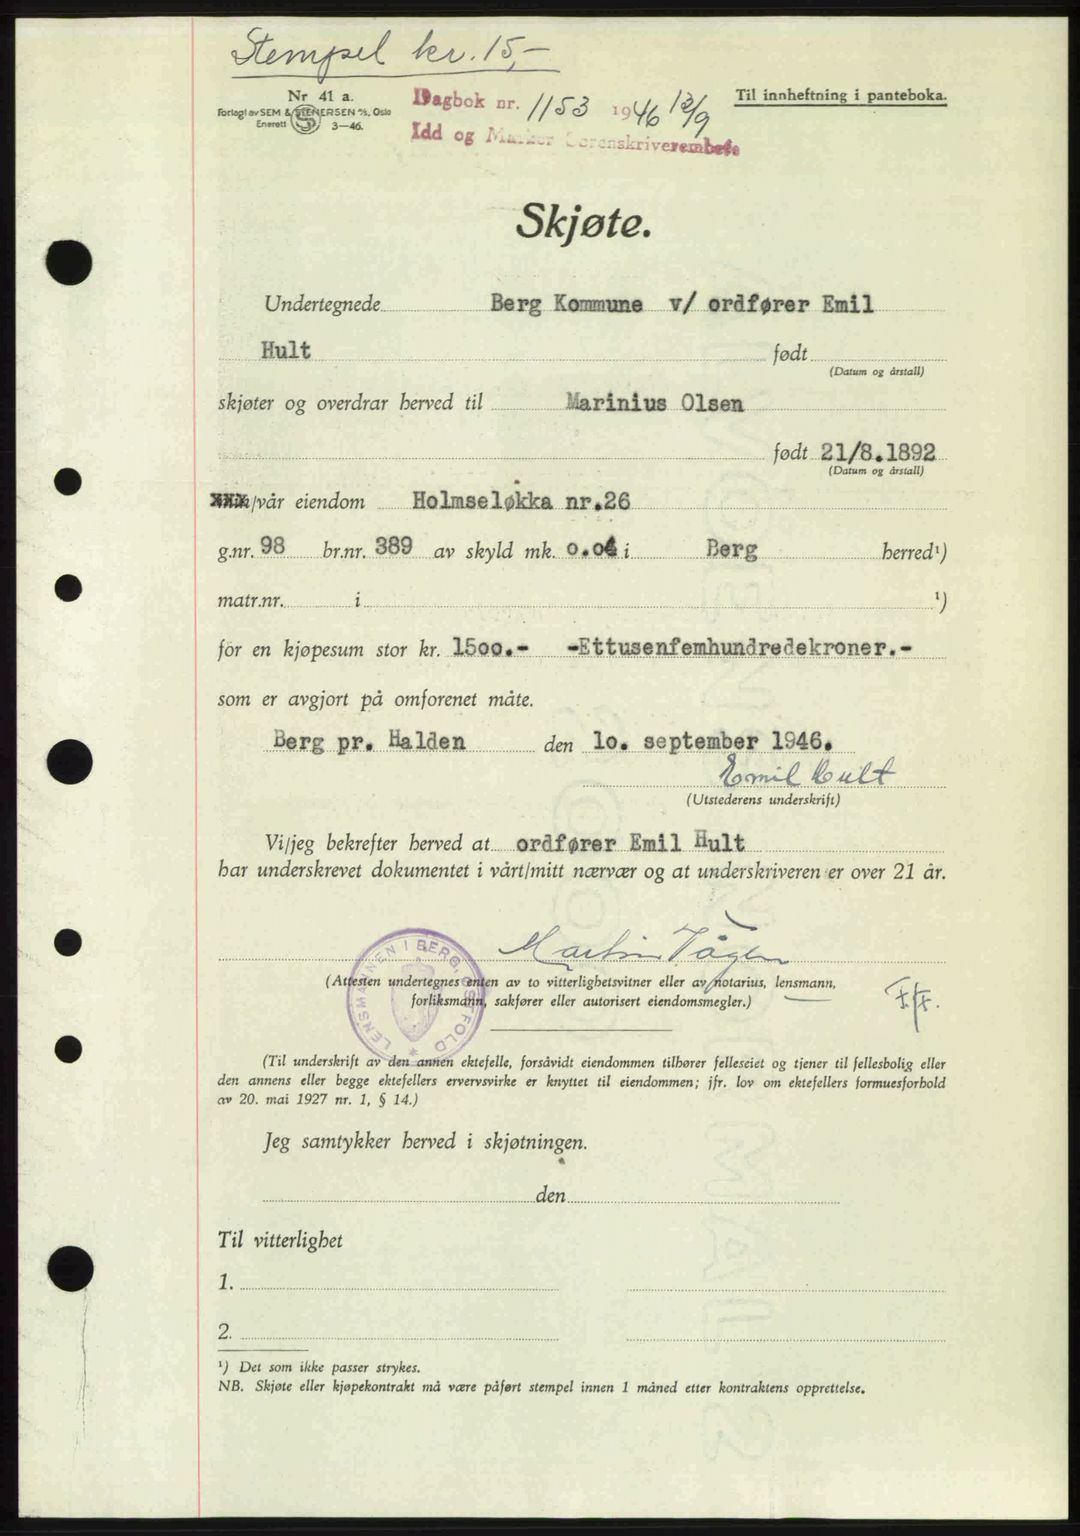 Stempel kr. 15,-
Nr 41 a.
Forlagt av SEM & STENERSEN A/S, Oslo
Enerett 3—46.
Dagbok nr. 1153 1946 12/9
Idd og Marker Sorenskriverembete
Til innheftning i panteboka.
Skjøte.
Undertegnede Berg Kommune v/ ordfører Emil
Hult født
(Datum og årstall)
skjøter og overdrar herved til Marinius Olsen
født 21/8.1892
(Datum og årstall)
/vår eiendom Holmseløkka nr.26
g.nr. 98 br.nr. 389 av skyld mk. o.o4 i Berg herred¹)
matr.nr. i ¹)
for en kjøpesum stor kr. 15oo.- -Ettusenfemhundredekroner.-
som er avgjort på omforenet måte.
Berg pr. Halden den 1o. september 1946.
Emil Hult
(Utstederens underskrift)
Vi/jeg bekrefter herved at ordfører Emil Hult
har underskrevet dokumentet i vårt/mitt nærvær og at underskriveren er over 21 år.
LENSMANNEN I BERG, ØSTFOLD
(Attesten undertegnes enten av to vitterlighetsvitner eller av notarius, lensmann,
forliksmann, sakfører eller autorisert eiendomsmegler.)
(Til underskrift av den annen ektefelle, forsåvidt eiendommen tilhører felleseiet og tjener til fellesbolig eller
den annens eller begge ektefellers ervervsvirke er knyttet til eiendommen; jfr. lov om ektefellers formuesforhold
av 20. mai 1927 nr. 1, § 14.)
Jeg samtykker herved i skjøtningen.
den
Til vitterlighet
1.
2.
¹) Det som ikke passer strykes.
NB. Skjøte eller kjøpekontrakt må være påført stempel innen 1 måned etter kontraktens opprettelse.